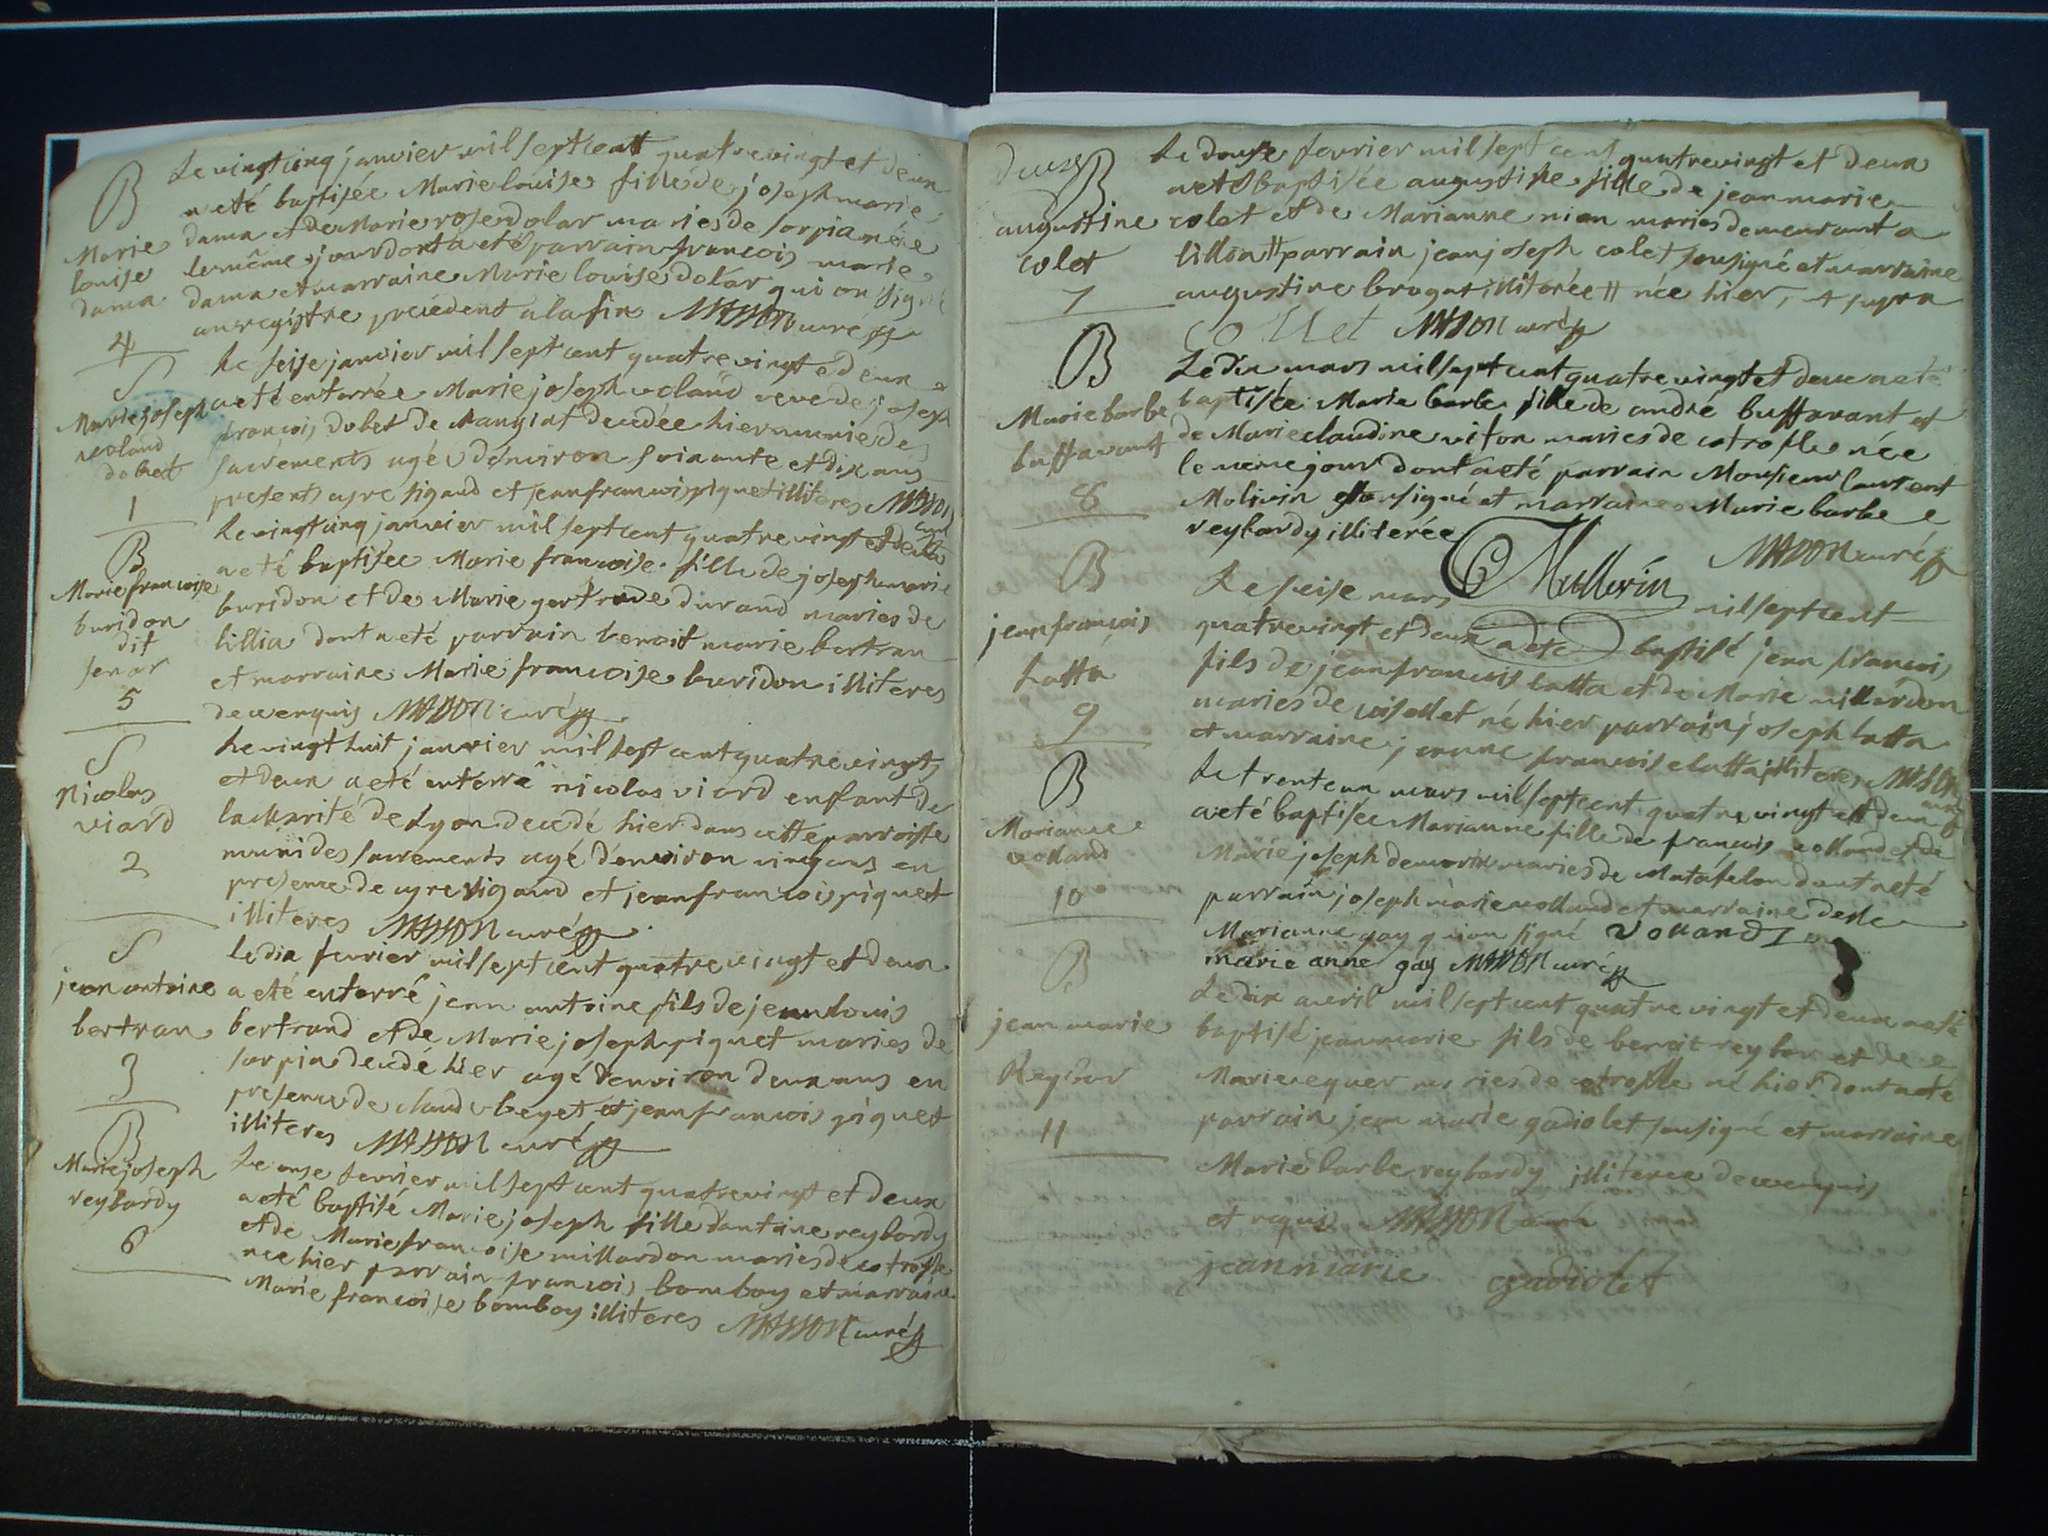 B
Marie
louise
dama
4
Le vingt cinq janvier mil sept cent quatre vingt et deux
a eté baptisée Marie louise fille de joseph marie
dama et de Marie rose dolar maries de sorpia née
le même jour dont a eté parrain francois marie
dama et marraine Marie louise dolar qui on signé
au registre precedent a la fin MASSON curé
S
Marie joseph
volland
dobet
1
Le seise janvier mil sept cent quatre vingt et deux
a eté enterrée Marie joseph voland veve de joseph
francois dobet de Mangiat decedée hier munie des
sacrements agée d'environ soixante et dix ans
presents cyre sigaud et jean francois piquet illiteres MASSON
curé
B
Marie francoise
buridon
dit
senar
5
Le vingt cinq janvier mil sept cent quatre vingt et deux
a eté baptisée Marie francoise fille de joseph marie
buridon et de Marie gertrude durand maries de
lillia dont a eté parrain benoit marie bertran
et marraine Marie francoise buridon illiteres
de ce enquis MASSON curé
S
Nicolas
viard
2
Le vingt huit janvier mil sept cent quatre vingt
et deux a eté enterré nicolas viard enfant de
la charité de Lyon decedé hier dans cette parroisse
muni des sacrements agé d'environ vingt ans en
presence de cyre sigaud et jean francois piquet
illiteres MASSON curé
S
jean antoine
bertran
3
Le dix fevrier mil sept cent quatre vingt et deux
a eté enterré jean antoine fils de jean louis
bertrand et de Marie joseph piquet maries de
sorpia decedé hier agé d'environ deux ans en
presence de claude beget et jean francois piquet
illiteres MASSON curé
B
Marie joseph
reybardy
6
Le onse fevrier mil sept cent quatre vingt et deux
a eté baptisé Marie joseph fille d'antoine reybardy
et de Marie francoise millardon maries de cotrofle
née hier parrain francois bomboy et marraine
Marie francoise bomboy illiteres MASSON curé
deux
B
augustine
colet
7
Le douse fevrier mil sept cent quatre vingt et deux
a eté baptisée augustine fille de jean marie
colet et de Marianne nion maries demeurant a
lillia parrain jean joseph colet sousigné et marraine
augustine brogat illiterée née hier,
collet MASSON curé
B
Marie barbe
buffavant
8
Le dix mars mil sept cent quatre vingt et deux a eté
baptisée Marie barbe fille de andré buffavant et
de Marie claudine viton maries de cotrofle née
le meme jour dont a eté parrain Monsieur laurent
Molivin sousigné et marraine Marie barbe
reybardy illiterée
Mollivin MASSON curé
B
jean francois
Latta
9
Le seise mars mil sept cent
quatre vingt et deux a eté baptisé jean francois
fils de jean francois latta et de Marie millardon
maries de coisellet né hier parrain joseph latta
et marraine jeanne francoise latta illiteres MASSON
curé
B
Marianne
volland
10
Le trente un mars mil sept cent quatre vingt et deux
a eté baptisée Marianne fille de francois volland et de
Marie joseph demorix maries de Matafelon dont a eté
parrain joseph marie volland et marraine delle
Marianne gay qui on signé Volland
marie anne gay MASSON curé
B
jean marie
Reybar
11
Le dix avril mil sept cent quatre vingt et deux a eté
baptisé jean marie fils de benoit reybar et de
Marie eguer maries de cotrofle né hier dont a eté
parrain jean marie gadiolet sousigné et marraine
Marie barbe reybardy illiteree de ce enquis
et requis MASSON curé
jean marie gadiolet